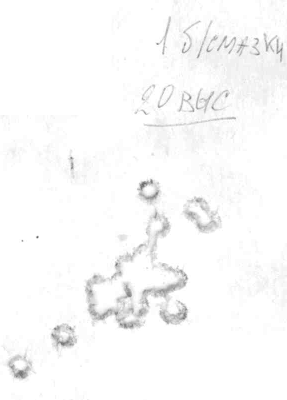 1 б/смазки
20 выс